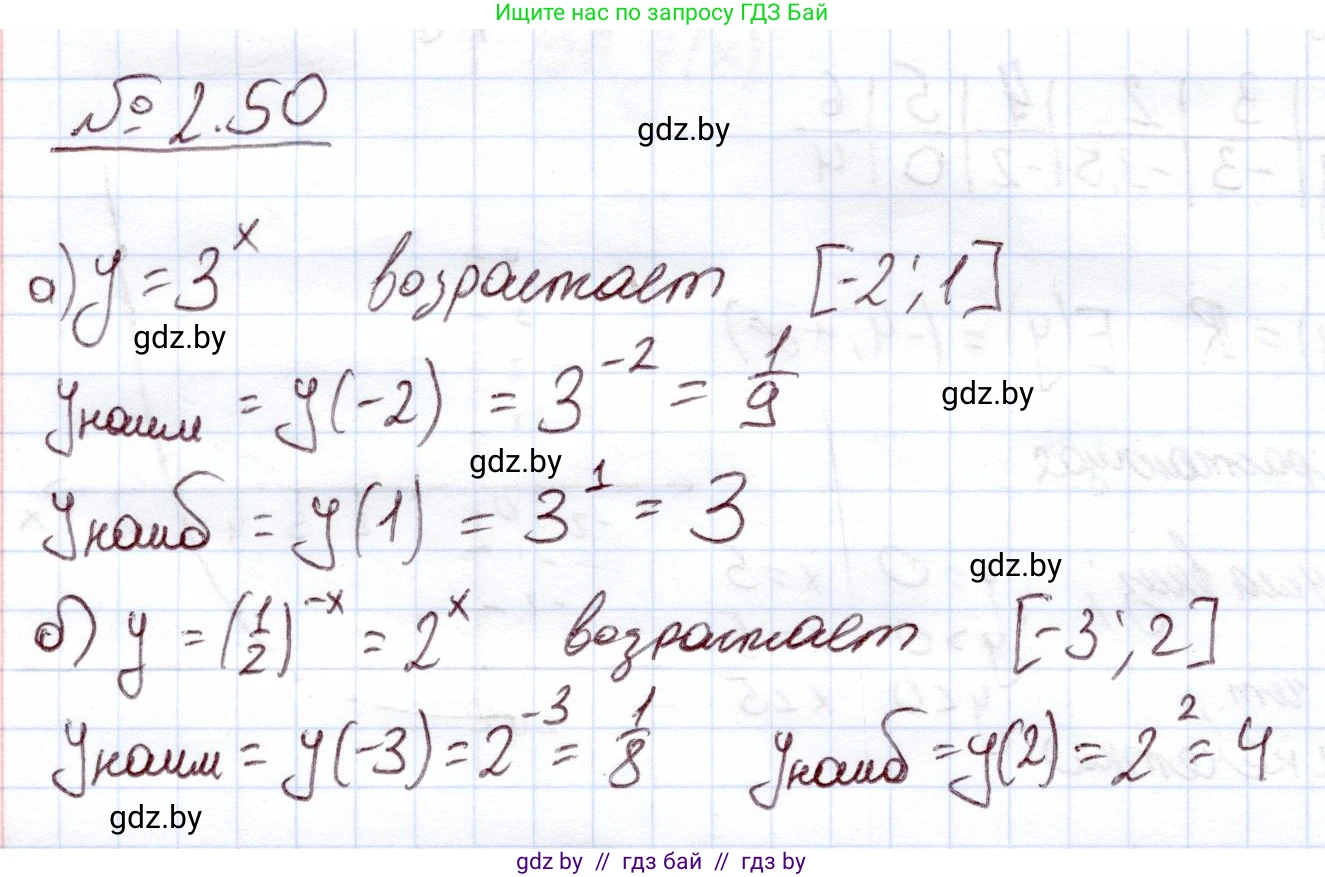 Ищите нас по запросу ГДЗ Бай
№ 2.50
gdz.by
а) y = 3^x возрастает [-2; 1]
gdz.by
yнаим = y(-2) = 3^-2 = 1/9
gdz.by
gdz.by
yнаиб = y(1) = 3^1 = 3
gdz.by
б) y = (1/2)^-x = 2^x возрастает [-3; 2]
yнаим = y(-3) = 2^-3 = 1/8 yнаиб = y(2) = 2^2 = 4
gdz.by
gdz by // гдз бай // гдз by